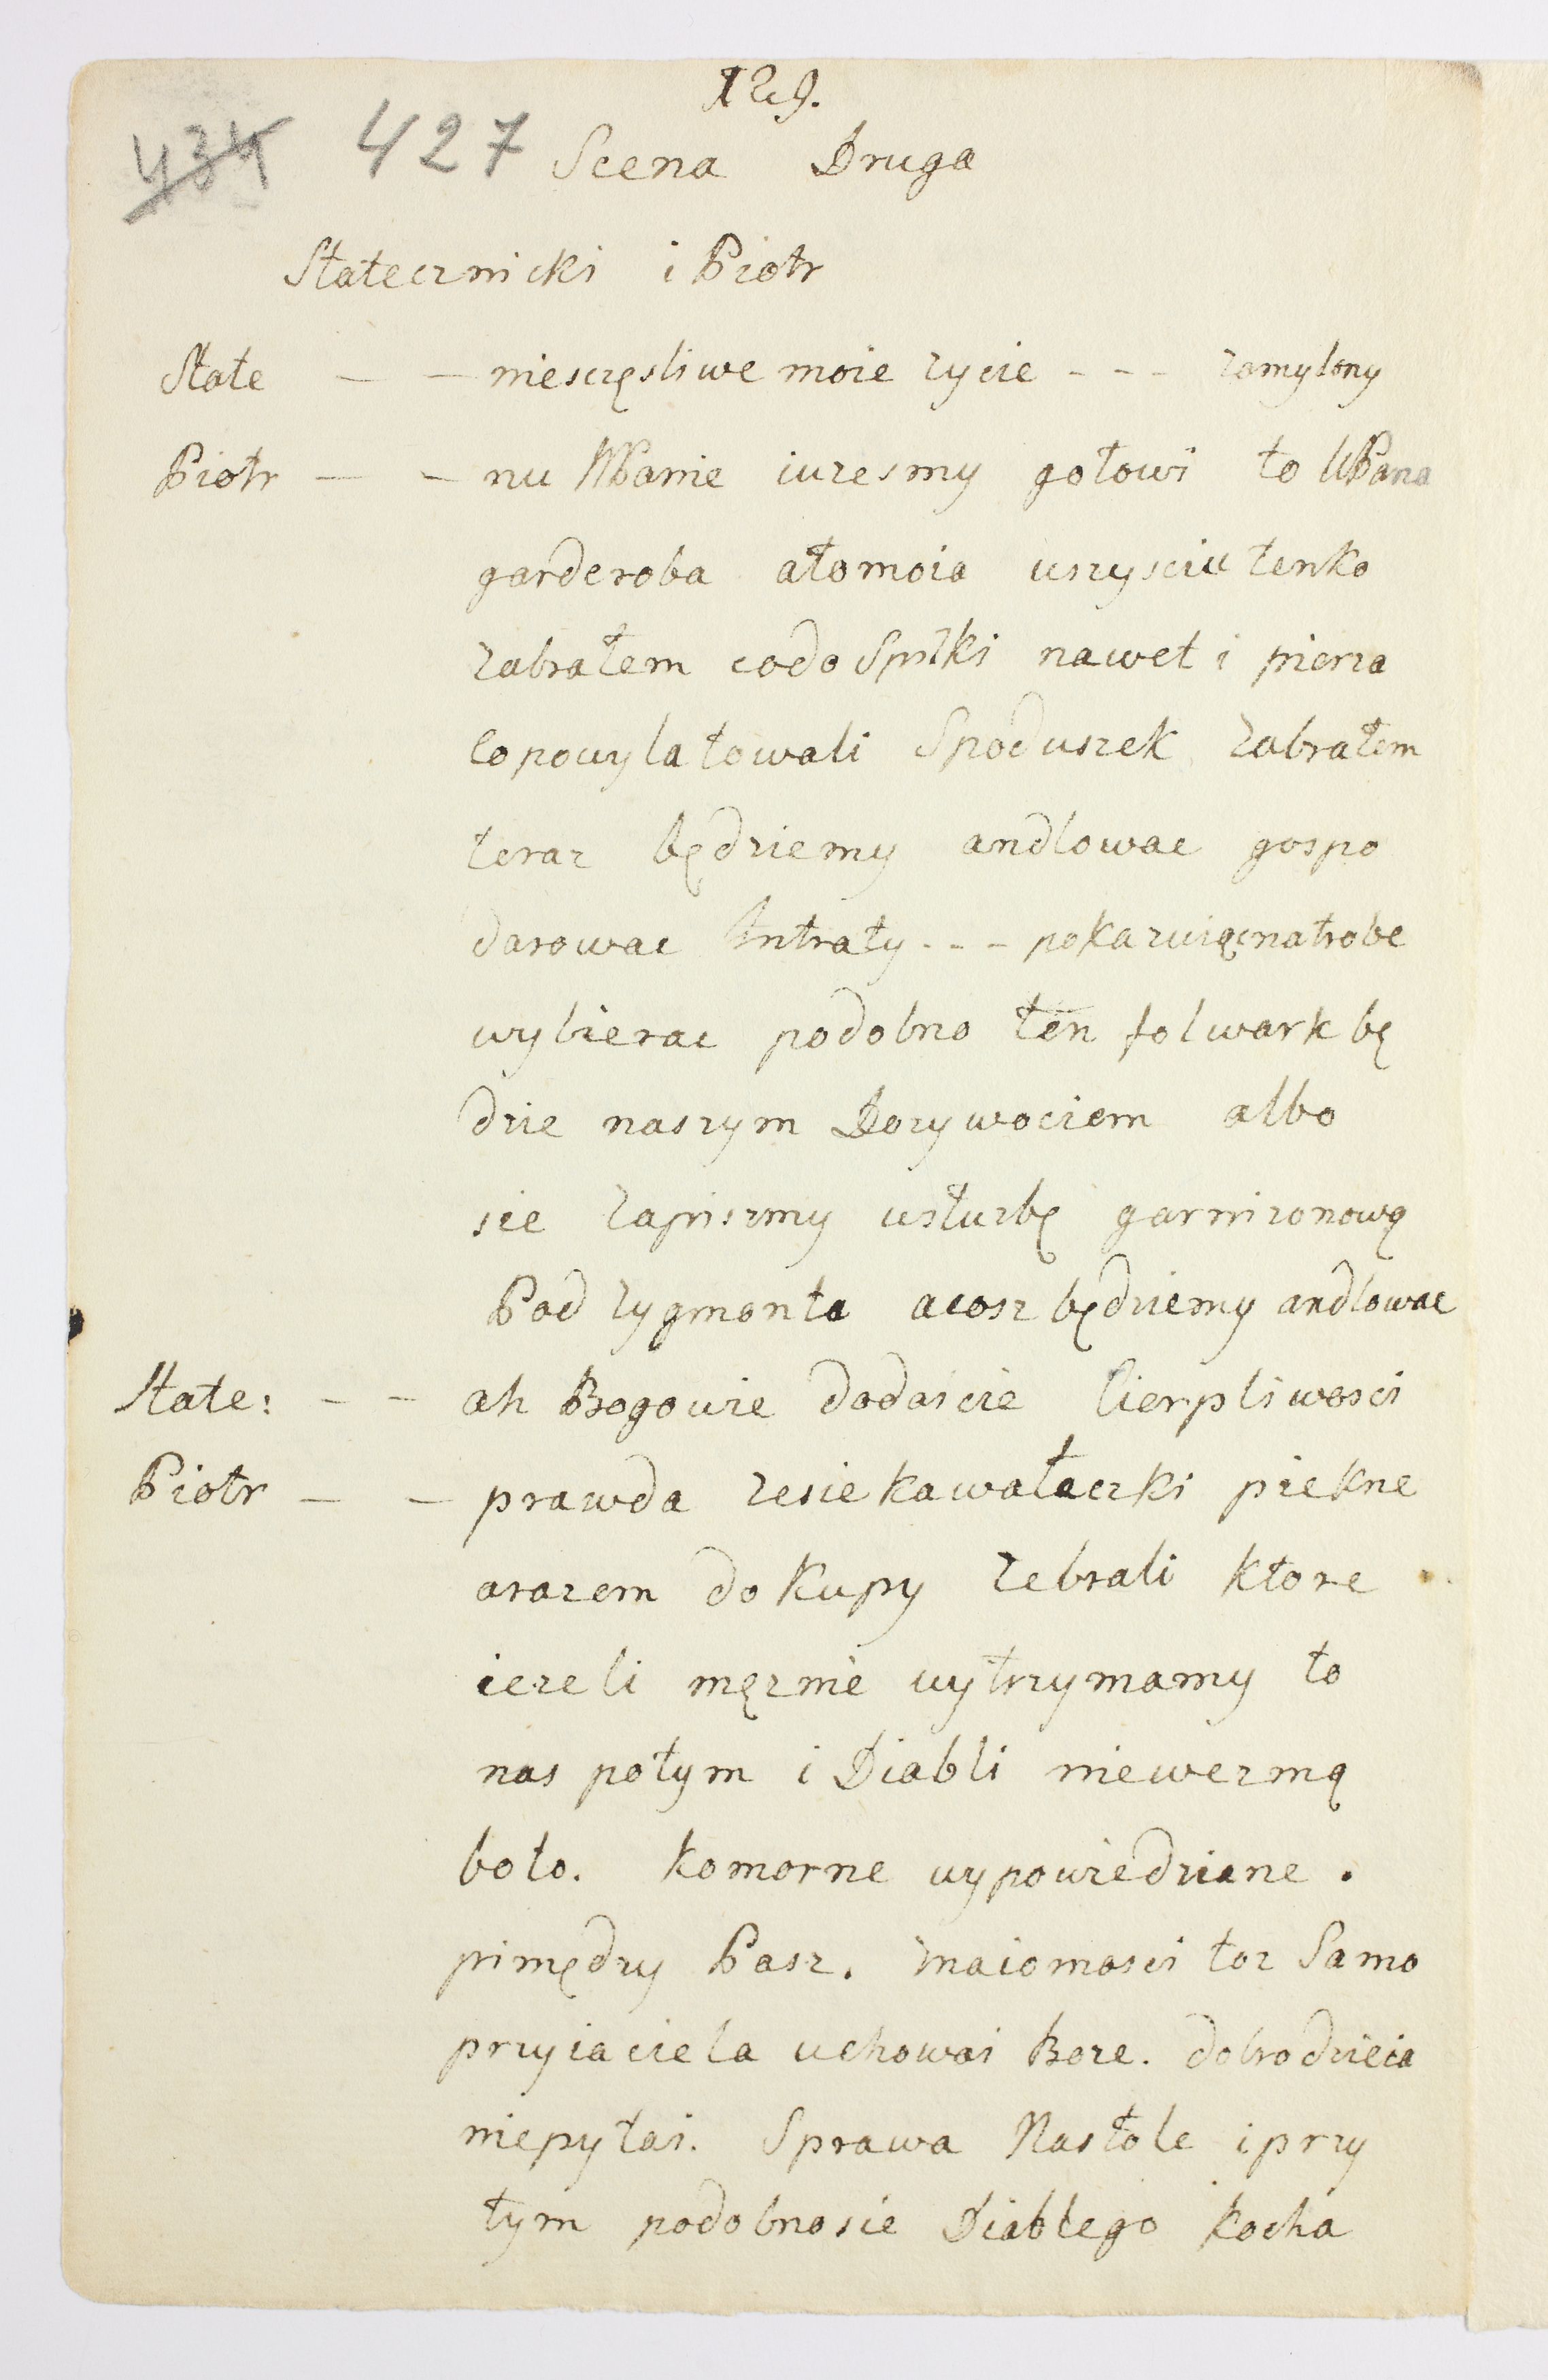 129.
434 427 Scena Druga
Statecznicki i Piotr
State — — niesczęsliwe moie zycie - - - zamylony
Piotr — — nu MPanie iuzesmy gotowi to WPana
garderoba atomoia wszysciutenko
zabrałem codo Spilki nawet i pierza
Co powylatowali Spoduszek zabrałem
teraz będziemy andlowac gospo
darowac Intraty - - - pokazuięcnatrobe
wybierac podobno ten folwark bę
dzie naszym Dozywociem albo
sie zapiszmy wsłuzbę garnizonową
Pod zygmonta acosz będziemy andlowac
State: - - ah Bogowie dodaicie Cierpliwosci
Piotr — — prawda zesie kawałeczki piekne
arazem do kupy zebrali ktore
iezeli męznie wytrzymamy to
nas potym i Diabli niewezmą
boto. komorne wypowiedziane.
pimędzy Pasz. znaiomosci toz Samo
przyiaciela uchowai Boze. dobrodzieia
niepytai. Sprawa Nastole iprzy
tym podobnosie Diablego kocha